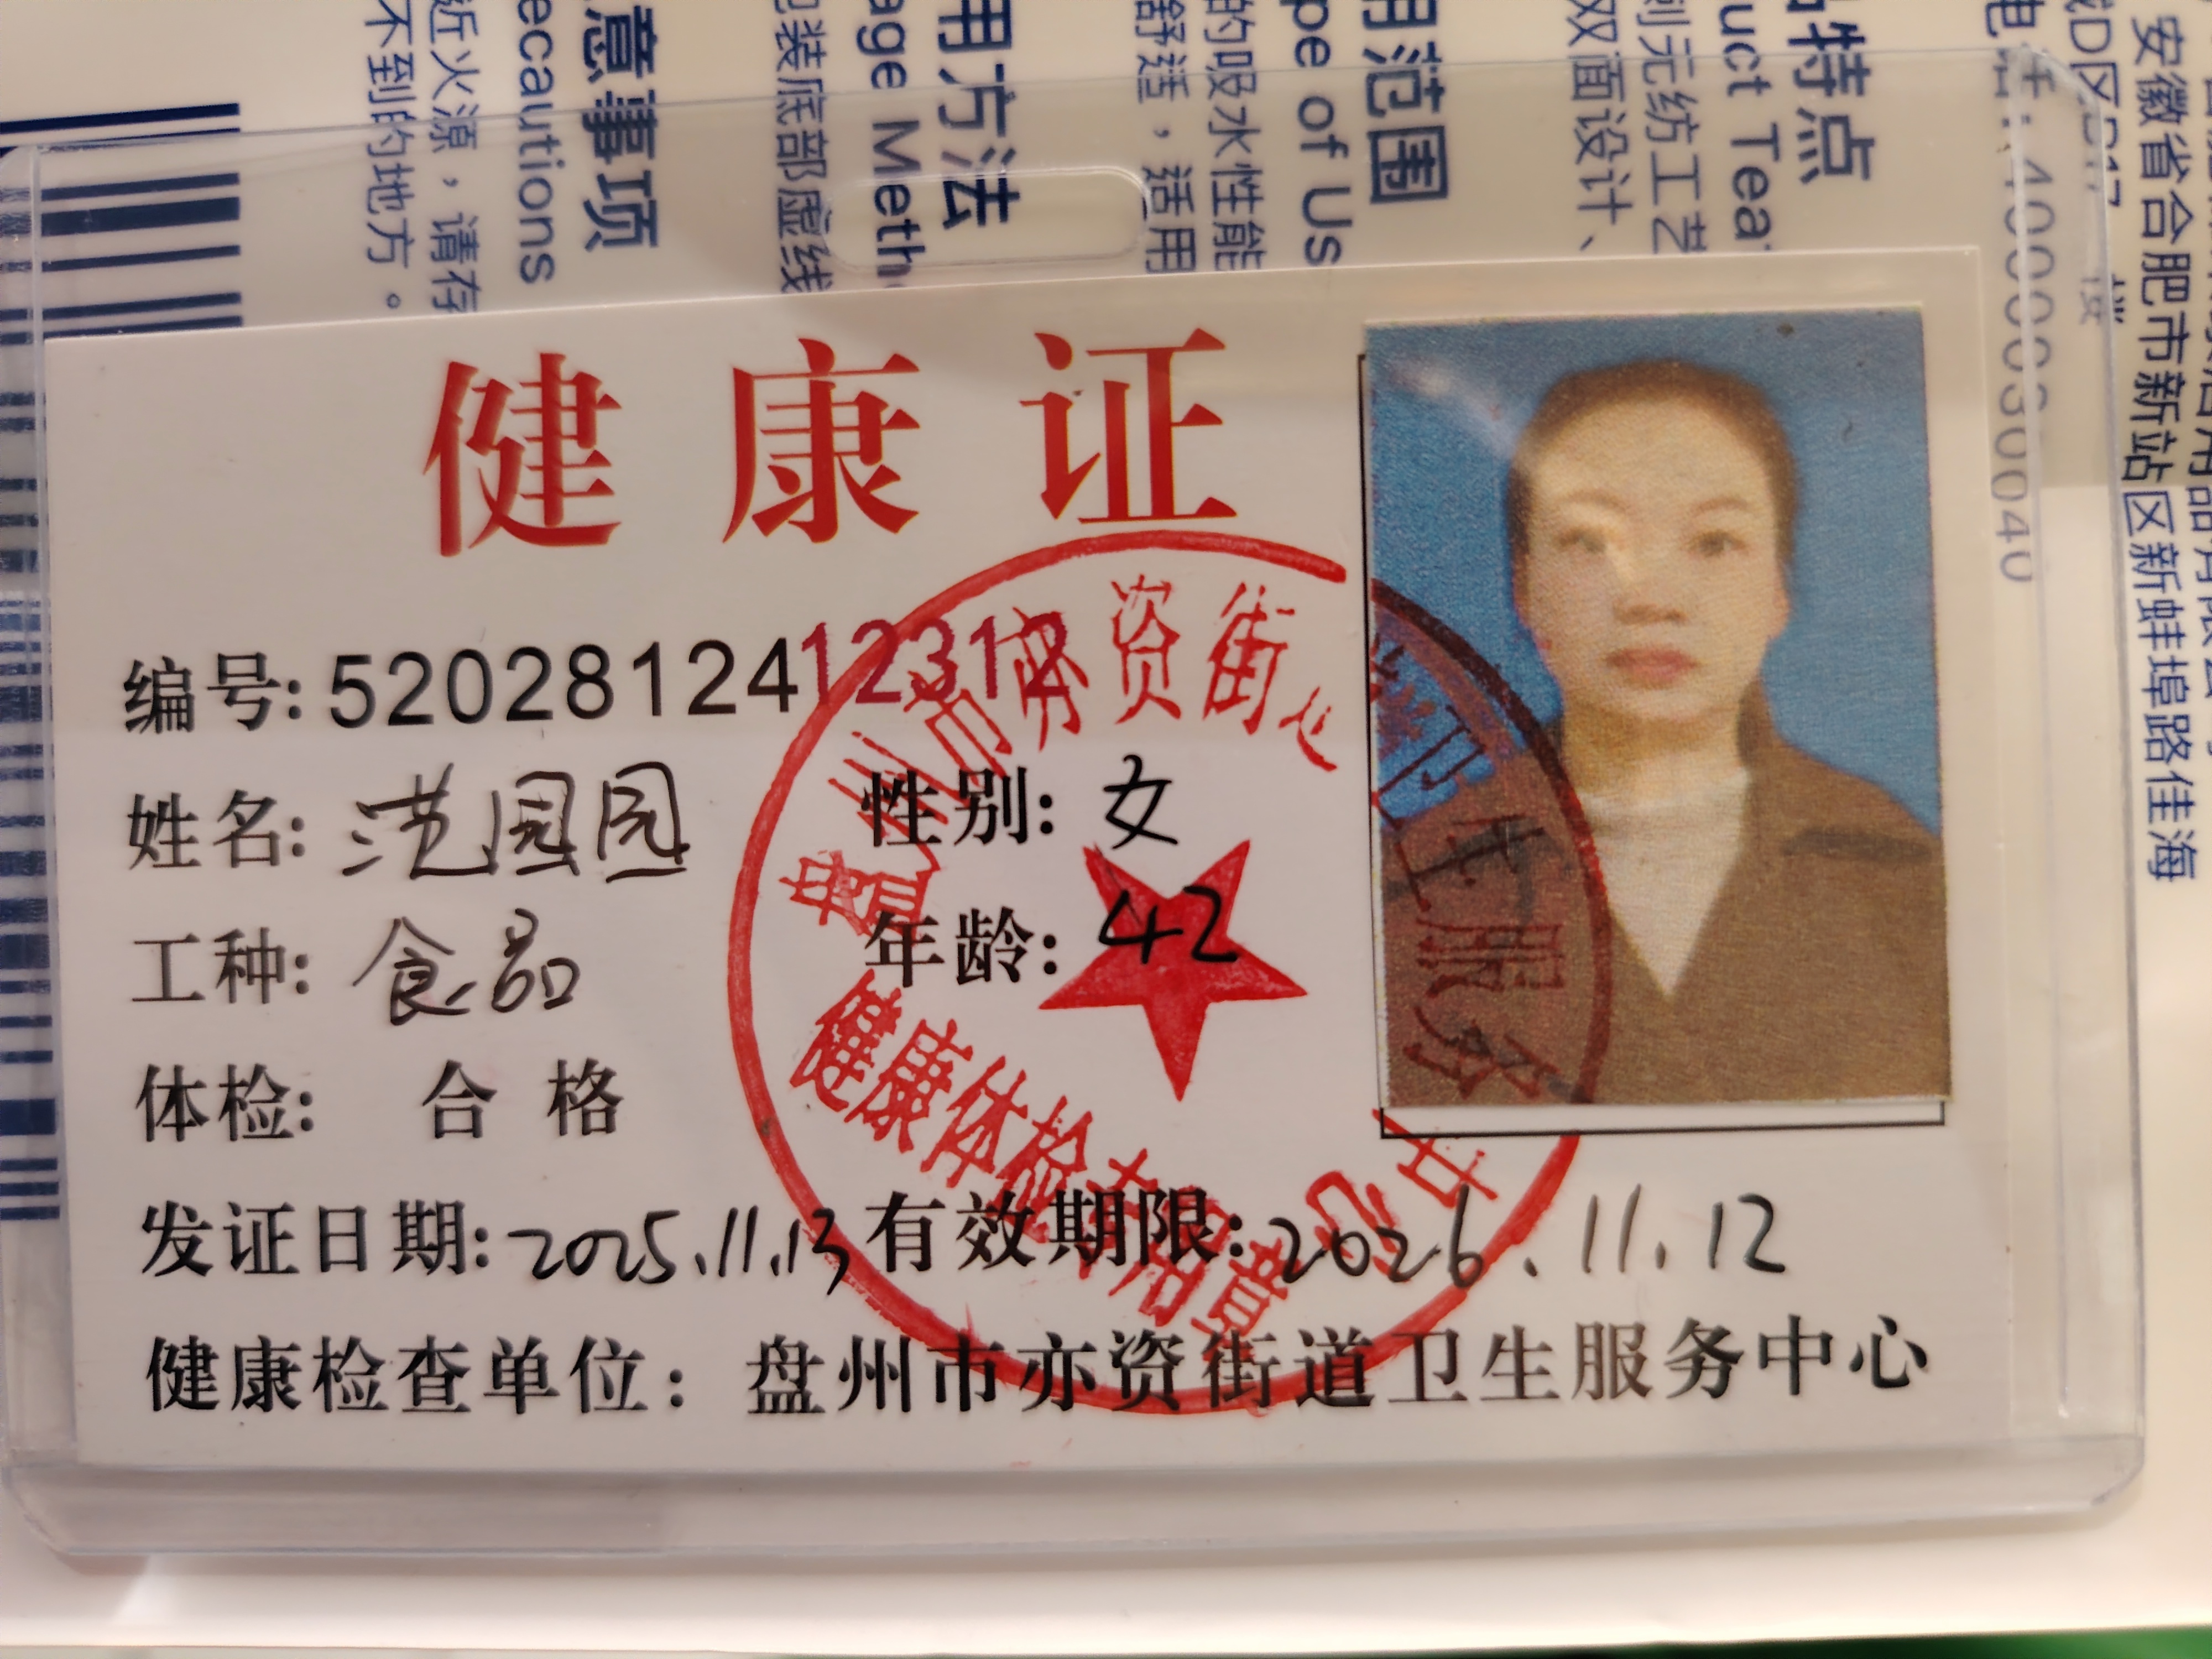 健康证
编号:5202812412312
姓名:范园园
性别:女
工种:食品
年龄:42
体检:合格
发证日期:2025.11.13
有效期限:2026.11.12
健康检查单位：盘州市亦资街道卫生服务中心
健康体检专用章
意事项
ecautions
近火源，请存
不到的地方。
用方法
age Meth
包装底部虚线
用范围
pe of Us
的吸水性能
舒适，适用
品特点
uct Tea
双面设计、
安徽省合肥市新站区新蚌埠路佳海